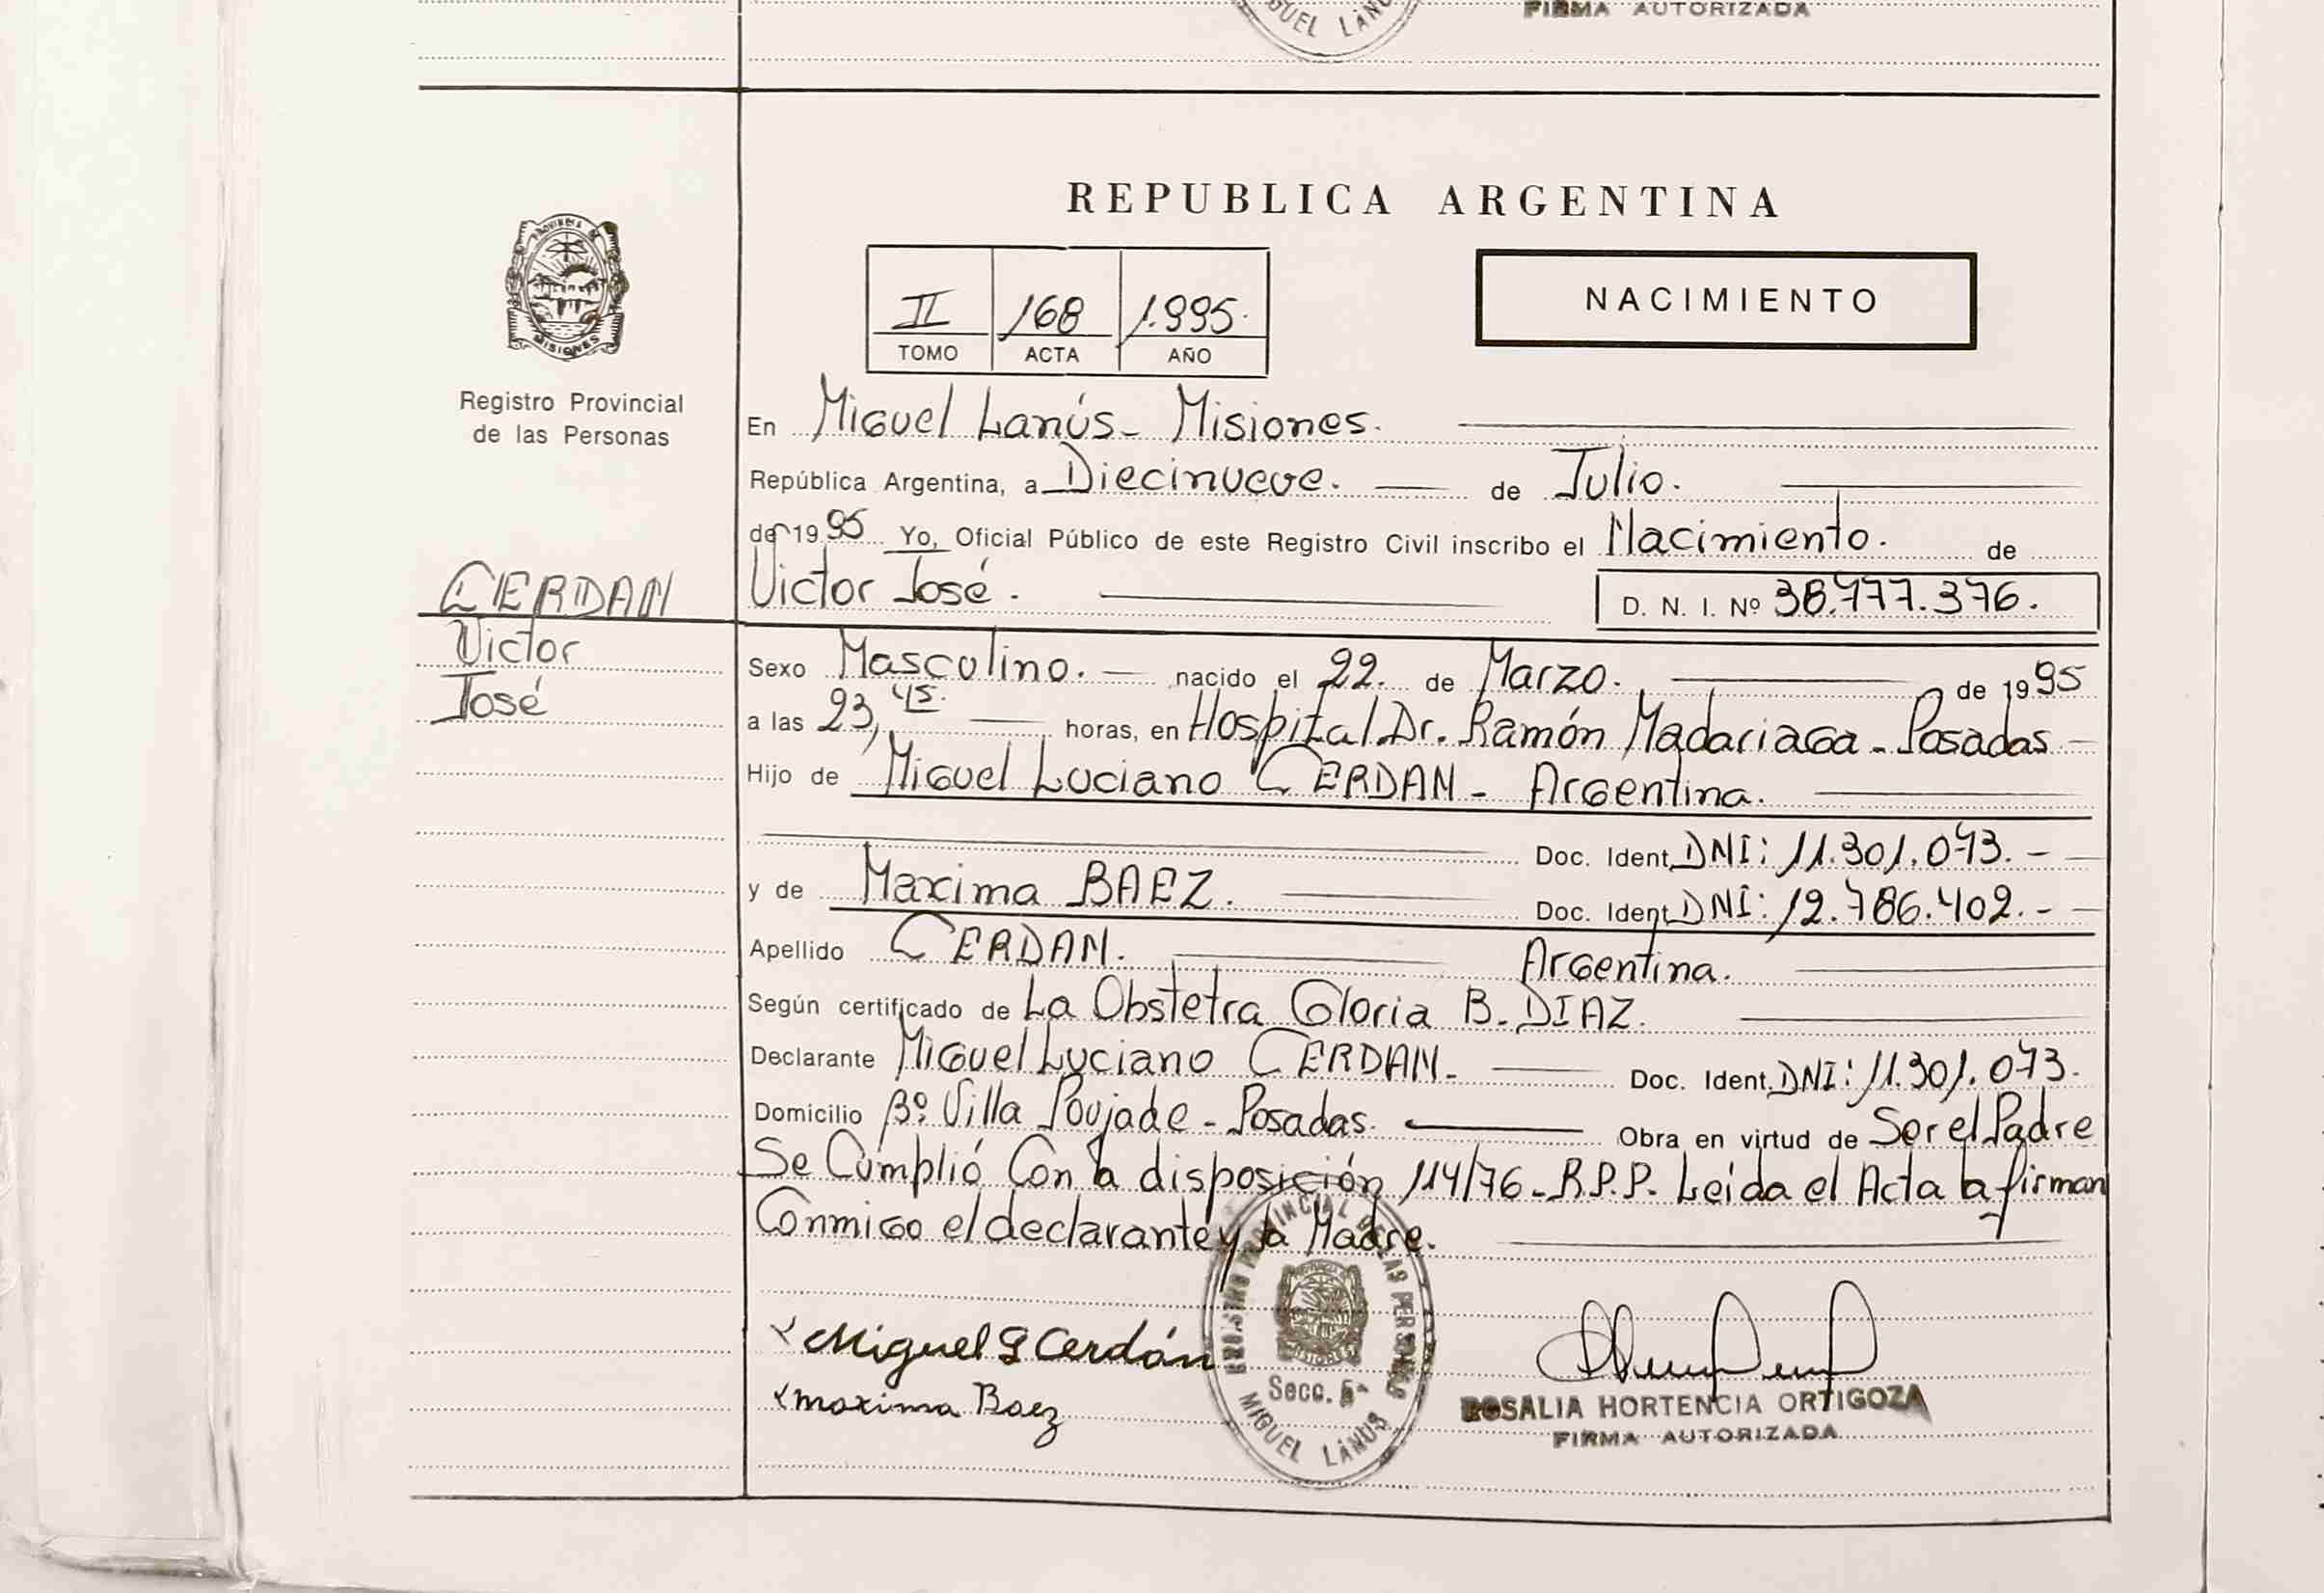 GUEL LANU
FIRMA AUTORIZADA
REPUBLICA ARGENTINA
PROVINCIA DE
MISIONES
Registro Provincial
de las Personas
II 168 1.995.
TOMO ACTA AÑO
NACIMIENTO
En Miguel Lanús - Misiones.
República Argentina, a Diecinueve. de Julio.
de 19 95 Yo, Oficial Público de este Registro Civil inscribo el Nacimiento. de
Victor José. D. N. I. Nº 38.777.376.
CERDAN
Victor
José
Sexo Masculino. nacido el 22. de Marzo. de 19 95
a las 23,45. horas, en Hospital Dr. Ramón Madariaga - Posadas
Hijo de Miguel Luciano CERDAN - Argentina.
Doc. Ident. DNI: 11.301.073.-
y de Maxima BAEZ. Doc. Ident. DNI: 12.786.402.-
Apellido CERDAN. Argentina.
Según certificado de La Obstetra Gloria B. DIAZ.
Declarante Miguel Luciano CERDAN - Doc. Ident. DNI: 11.301.073.
Domicilio Bº Villa Poujade - Posadas. Obra en virtud de Ser el Padre
Se Cumplió Con la disposición 114/76 - R.P.P. Leída el Acta la firman
Conmigo el declarante y la Madre.
REGISTRO PROVINCIAL DE LAS PERSONAS
Secc. 5ª
MIGUEL LANUS
Miguel L Cerdán
maxima Baez
ROSALIA HORTENCIA ORTIGOZA
FIRMA AUTORIZADA